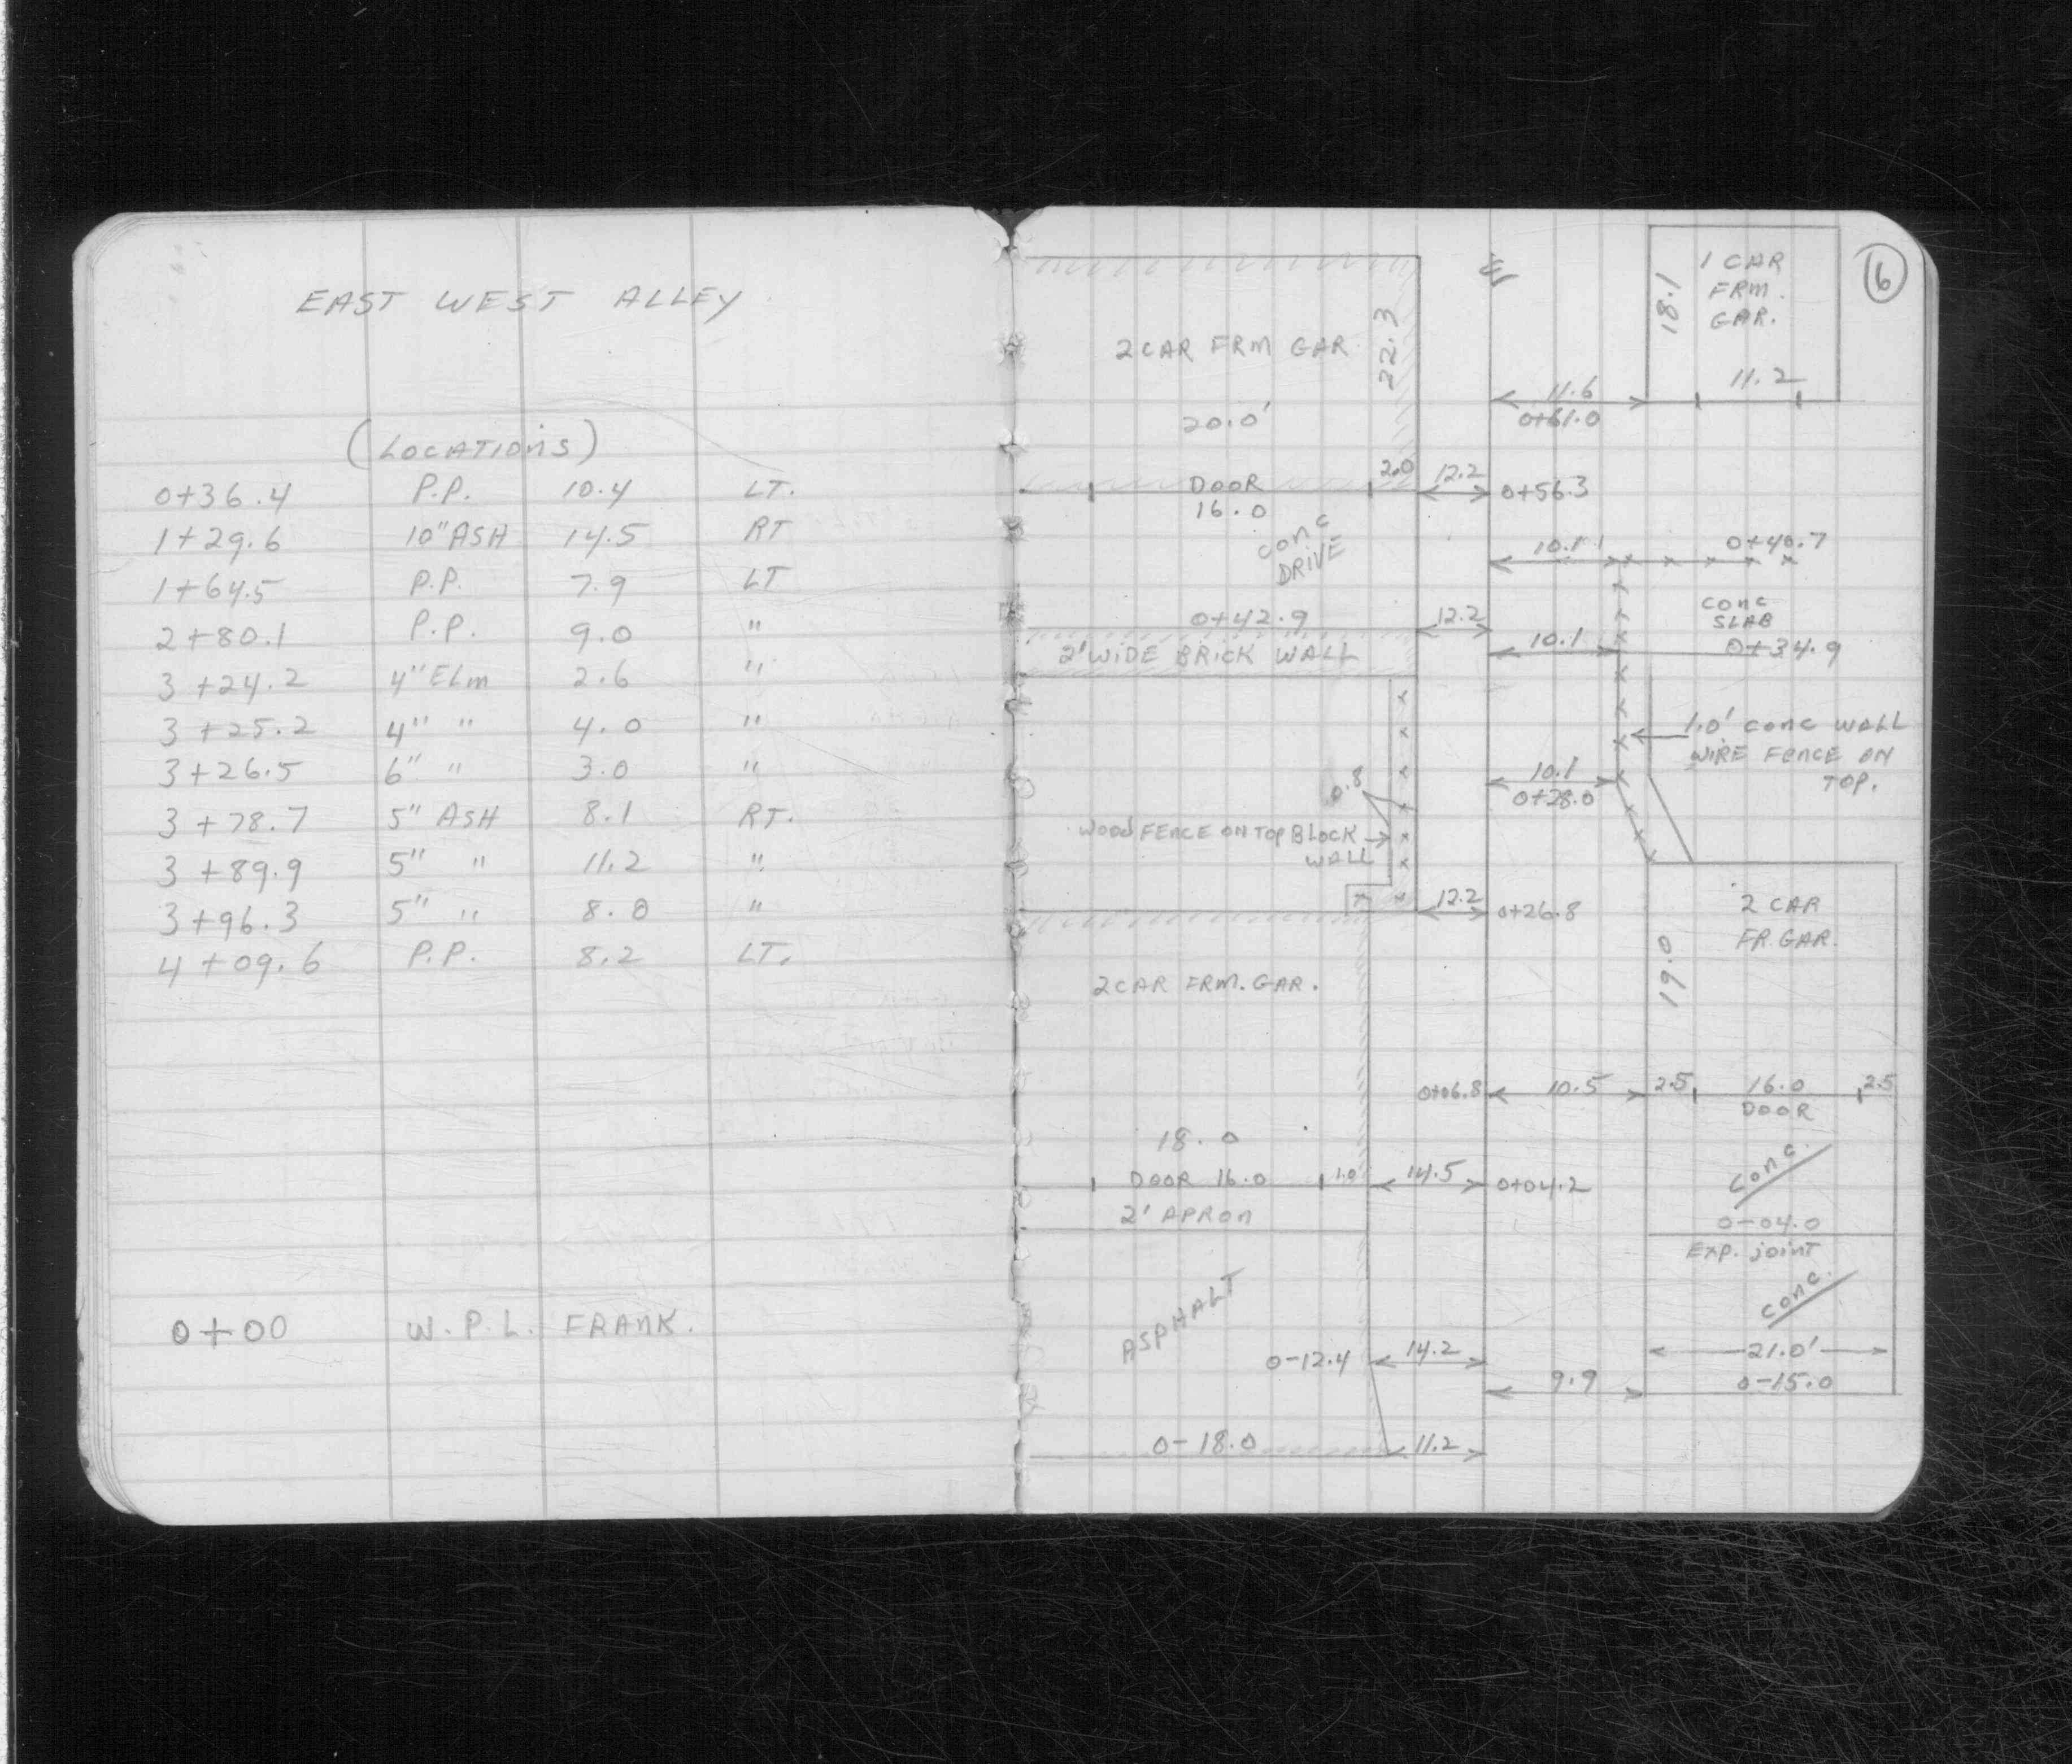 EAST WEST ALLEY
(LOCATIONS)
0+36.4 P.P. 10.4 LT.
1+29.6 10" ASH 14.5 RT
1+64.5 P.P. 7.9 LT
2+80.1 P.P. 9.0 "
3+24.2 4" ELM 2.6 "
3+25.2 4" " 4.0 "
3+26.5 6" " 3.0 "
3+78.7 5" ASH 8.1 RT.
3+89.9 5" " 11.2 "
3+96.3 5" " 8.0 "
4+09.6 P.P. 8.2 LT.
0+00 W.P.L. FRANK.
16
1 CAR
FRM.
GAR.
18.1
22.3
2 CAR FRM GAR.
11.2
11.6
0+61.0
20.0'
2.0 12.2
DOOR
0+56.3
16.0
CONC
DRIVE
10.1 0+40.7
CONC
SLAB
0+42.9 12.2
10.1 0+34.9
2' WIDE BRICK WALL
1.0' CONC WALL
WIRE FENCE ON
TOP.
10.1
0+28.0
0.8
WOOD FENCE ON TOP BLOCK
WALL
12.2 0+26.8
2 CAR
FR. GAR.
19.0
2 CAR FRM. GAR.
0+06.8 10.5 2.5 16.0 2.5
DOOR
18.0
DOOR 16.0 1.0 14.5 0+04.2
CONC.
2' APRON
0-04.0
EXP. JOINT
CONC.
ASPHALT
0-12.4 14.2
21.0'
9.9 0-15.0
0-18.0 11.2